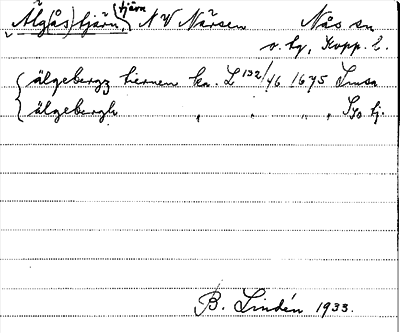 Älgås)tjärn, (tjärn N V Närsen Nås sn
v. bg, Kopp. l.
älgebergz tiernen ka. L 132/46 1675 Insa
älgebergh " " " " Sjö, tj.
B. Lindén 1933.